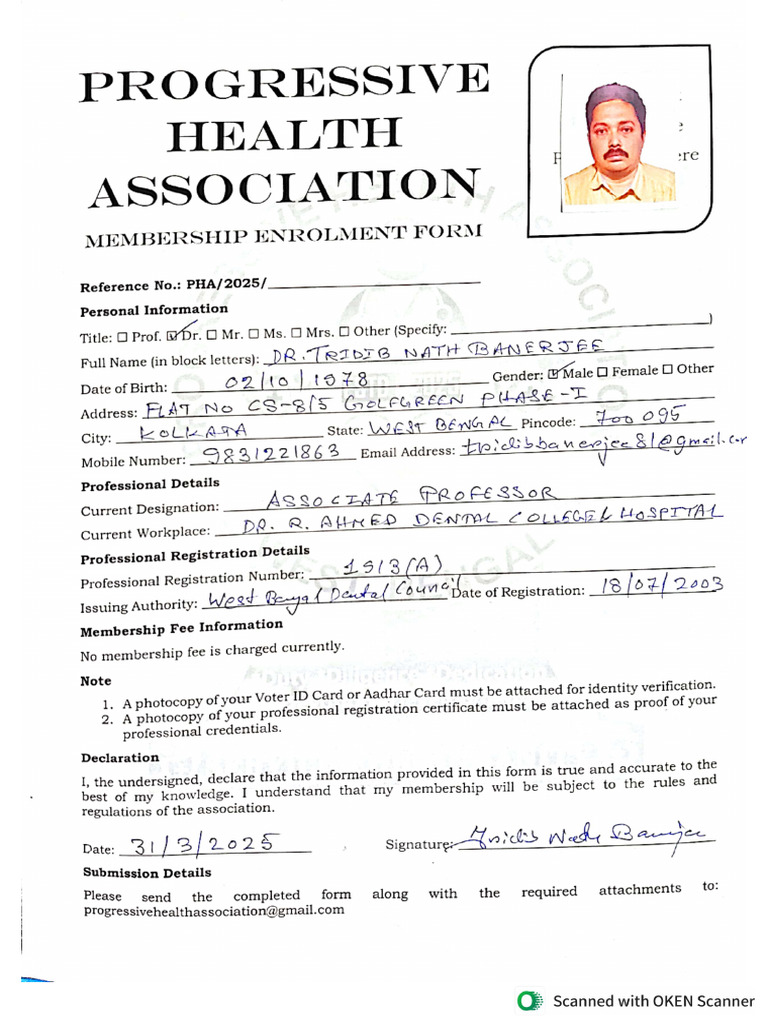 PROGRESSIVE
HEALTH
ASSOCIATION
MEMBERSHIP ENROLMENT FORM
Reference No.: PHA/2025/
Personal Information
Title: ☐ Prof. ☑ Dr. ☐ Mr. ☐ Ms. ☐ Mrs. ☐ Other (Specify: )
Full Name (in block letters): DR. TRIDIB NATH BANERJEE
Date of Birth: 02/10/1978 Gender: ☑ Male ☐ Female ☐ Other
Address: FLAT NO CS-8/5 GOLFGREEN PHASE-I
City: KOLKATA State: WEST BENGAL Pincode: 700 095
Mobile Number: 9831221863 Email Address: tridibbanerjee81@gmail.com
Professional Details
Current Designation: ASSOCIATE PROFESSOR
Current Workplace: DR. R. AHMED DENTAL COLLEGE & HOSPITAL
Professional Registration Details
Professional Registration Number: 1513(A)
Issuing Authority: West Bengal Dental Council Date of Registration: 18/07/2003
Membership Fee Information
No membership fee is charged currently.
Note
1. A photocopy of your Voter ID Card or Aadhar Card must be attached for identity verification.
2. A photocopy of your professional registration certificate must be attached as proof of your
professional credentials.
Declaration
I, the undersigned, declare that the information provided in this form is true and accurate to the
best of my knowledge. I understand that my membership will be subject to the rules and
regulations of the association.
Date: 31/3/2025 Signature: Tridib Nath Banerjee
Submission Details
Please send the completed form along with the required attachments to:
progressivehealthassociation@gmail.com
Scanned with OKEN Scanner